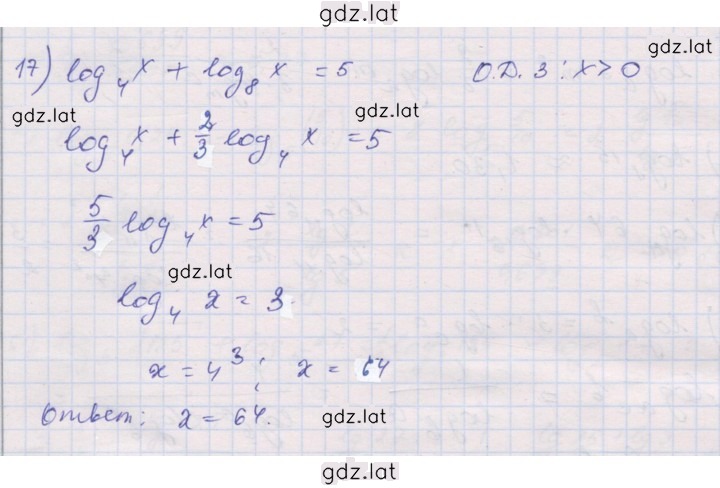 gdz.lat
17) log₄x + log₈x = 5 О.Д.З : x > 0
gdz.lat
gdz.lat
gdz.lat
log₄x + 2/3 log₄x = 5
5/3 log₄x = 5
gdz.lat
log₄x = 3
x = 4³; x = 64
Ответ: x = 64.
gdz.lat
gdz.lat